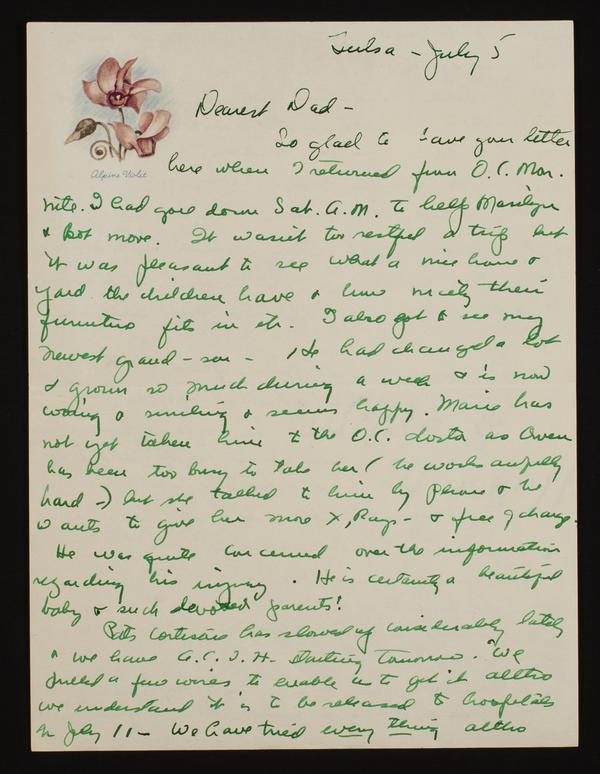 Tulsa - July 5
Dearest Dad -
So glad to have your letter
here when I returned from O.C. Mon.
Alpine Violet
nite. I had gone down Sat. A.M. to help Marilyn
& Bot move. It wasn't too restful a trip but
it was pleasant to see what a nice home &
yard the children have & how nicely their
furniture fits in etc. I also got to see my
newest grand-son - He had changed a lot
& grown so much during a week & is now
cooing & smiling & seems happy. Marie has
not yet taken him to the O.C. doctor as Owen
has been too busy to take her ( he works awfully
hard -) but she talked to him by phone & he
wants to give her more X,Rays - & free of charge.
He was quite concerned over the information
regarding his injury. He is certainly a beautiful
baby & such devoted parents!
Bots cortisone has slowed up considerably lately
& we have A.C.T.H. starting tomorrow. We
pulled a few wires to enable us to get it altho
we understand it is to be released to hospitals
on July 11 - We have tried every thing altho